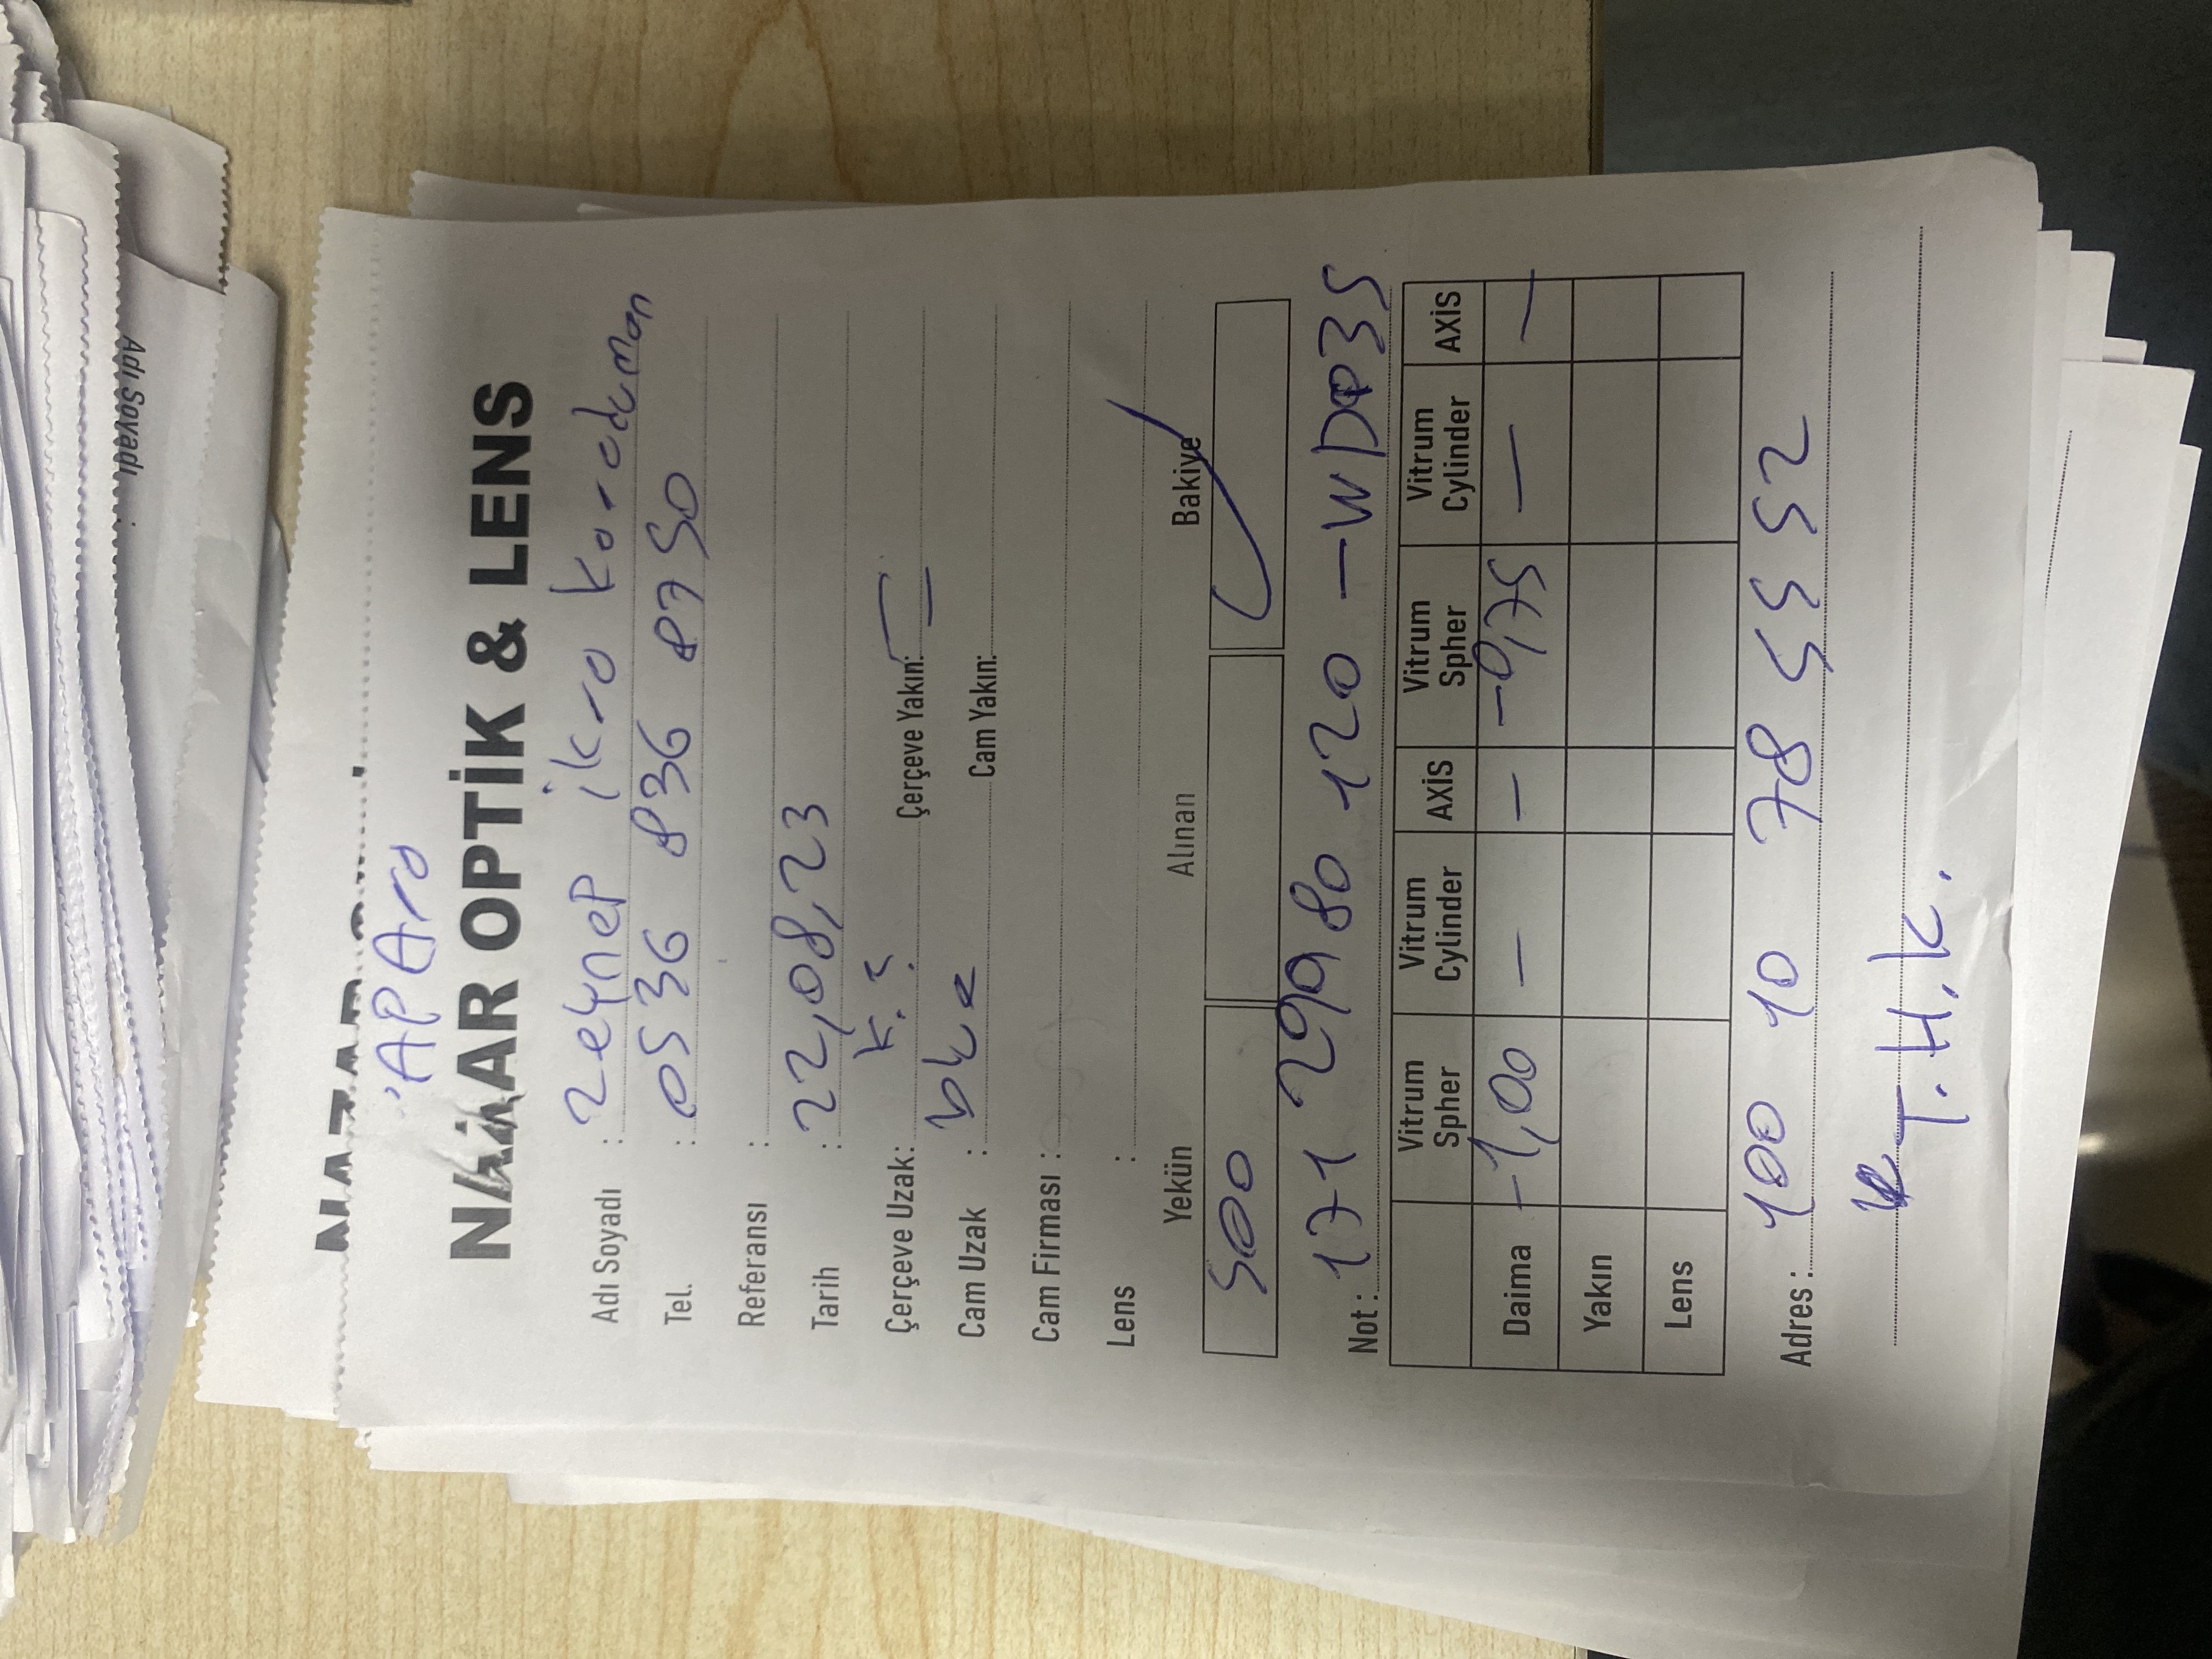 Adı Soyadı :
NAZAR
APAra
NAZAR OPTİK & LENS
Adı Soyadı : Zeynep ikra Karaduman
Tel. : 0536 836 8750
Referansı :
Tarih : 22,08,23
Çerçeve Uzak: K.Ç Çerçeve Yakın:
Cam Uzak : blue Cam Yakın:
Cam Firması :
Lens :
Yekün Alınan Bakiye
500
Not : 171 29980 120 -WD035
Vitrum Spher Vitrum Cylinder AXİS Vitrum Spher Vitrum Cylinder AXİS
Daima -1,00 — — -0,75 — —
Yakın
Lens
Adres : 100 10 78 55 52
T.H.K.